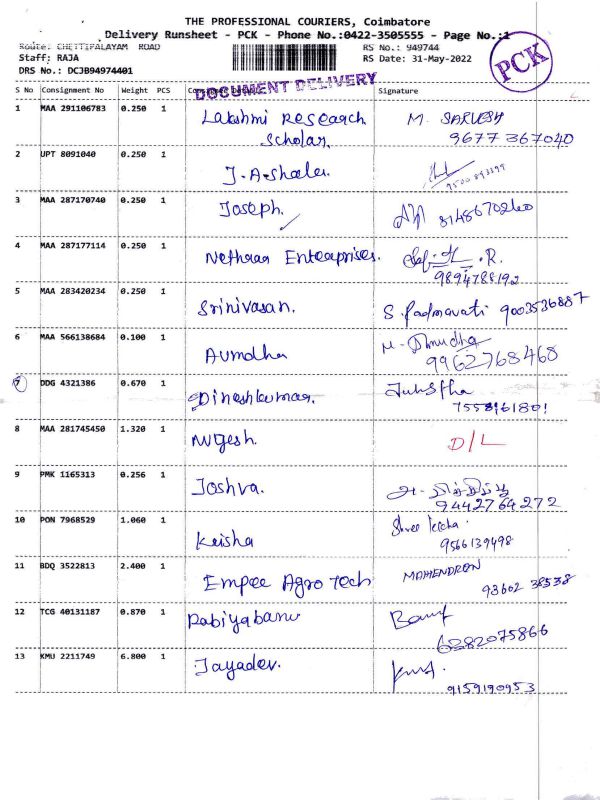 THE PROFESSIONAL COURIERS, Coimbatore
Delivery Runsheet - PCK - Phone No.:0422-3505555 - Page No.:1
Route: CHETTIPALAYAM ROAD
RS No.: 949744
Staff: RAJA
RS Date: 31-May-2022
PCK
DRS No.: DCJB94974401
DOCUMENT DELIVERY
S No Consignment No Weight PCS Signature
1 MAA 291106783 0.250 1 Lakshmi Research M. SARVESH
Scholar. 9677367040
2 UPT 8091040 0.250 1
3 MAA 287170740 0.250 1 Joseph. 8148670260
4 MAA 287177114 0.250 1 Enterprises. R.
9894788192
5 MAA 283420234 0.250 1 Srinivasan. S. Padmavati 9003536887
6 MAA 566138684 0.100 1
9962768468
7 DDG 4321386 0.670 1 Dineshkumar.
8 MAA 281745450 1.320 1 D/L
9 PMK 1165313 0.256 1 Joshva.
9442764272
10 PON 7968529 1.060 1 Shree
9566139498
11 BDQ 3522813 2.400 1 Empee Agro Tech MAHENDRON
93602 38538
12 TCG 40131187 0.870 1 Rabiyabanu
6282075866
13 KMU 2211749 6.800 1 Jayadev.
9159190953